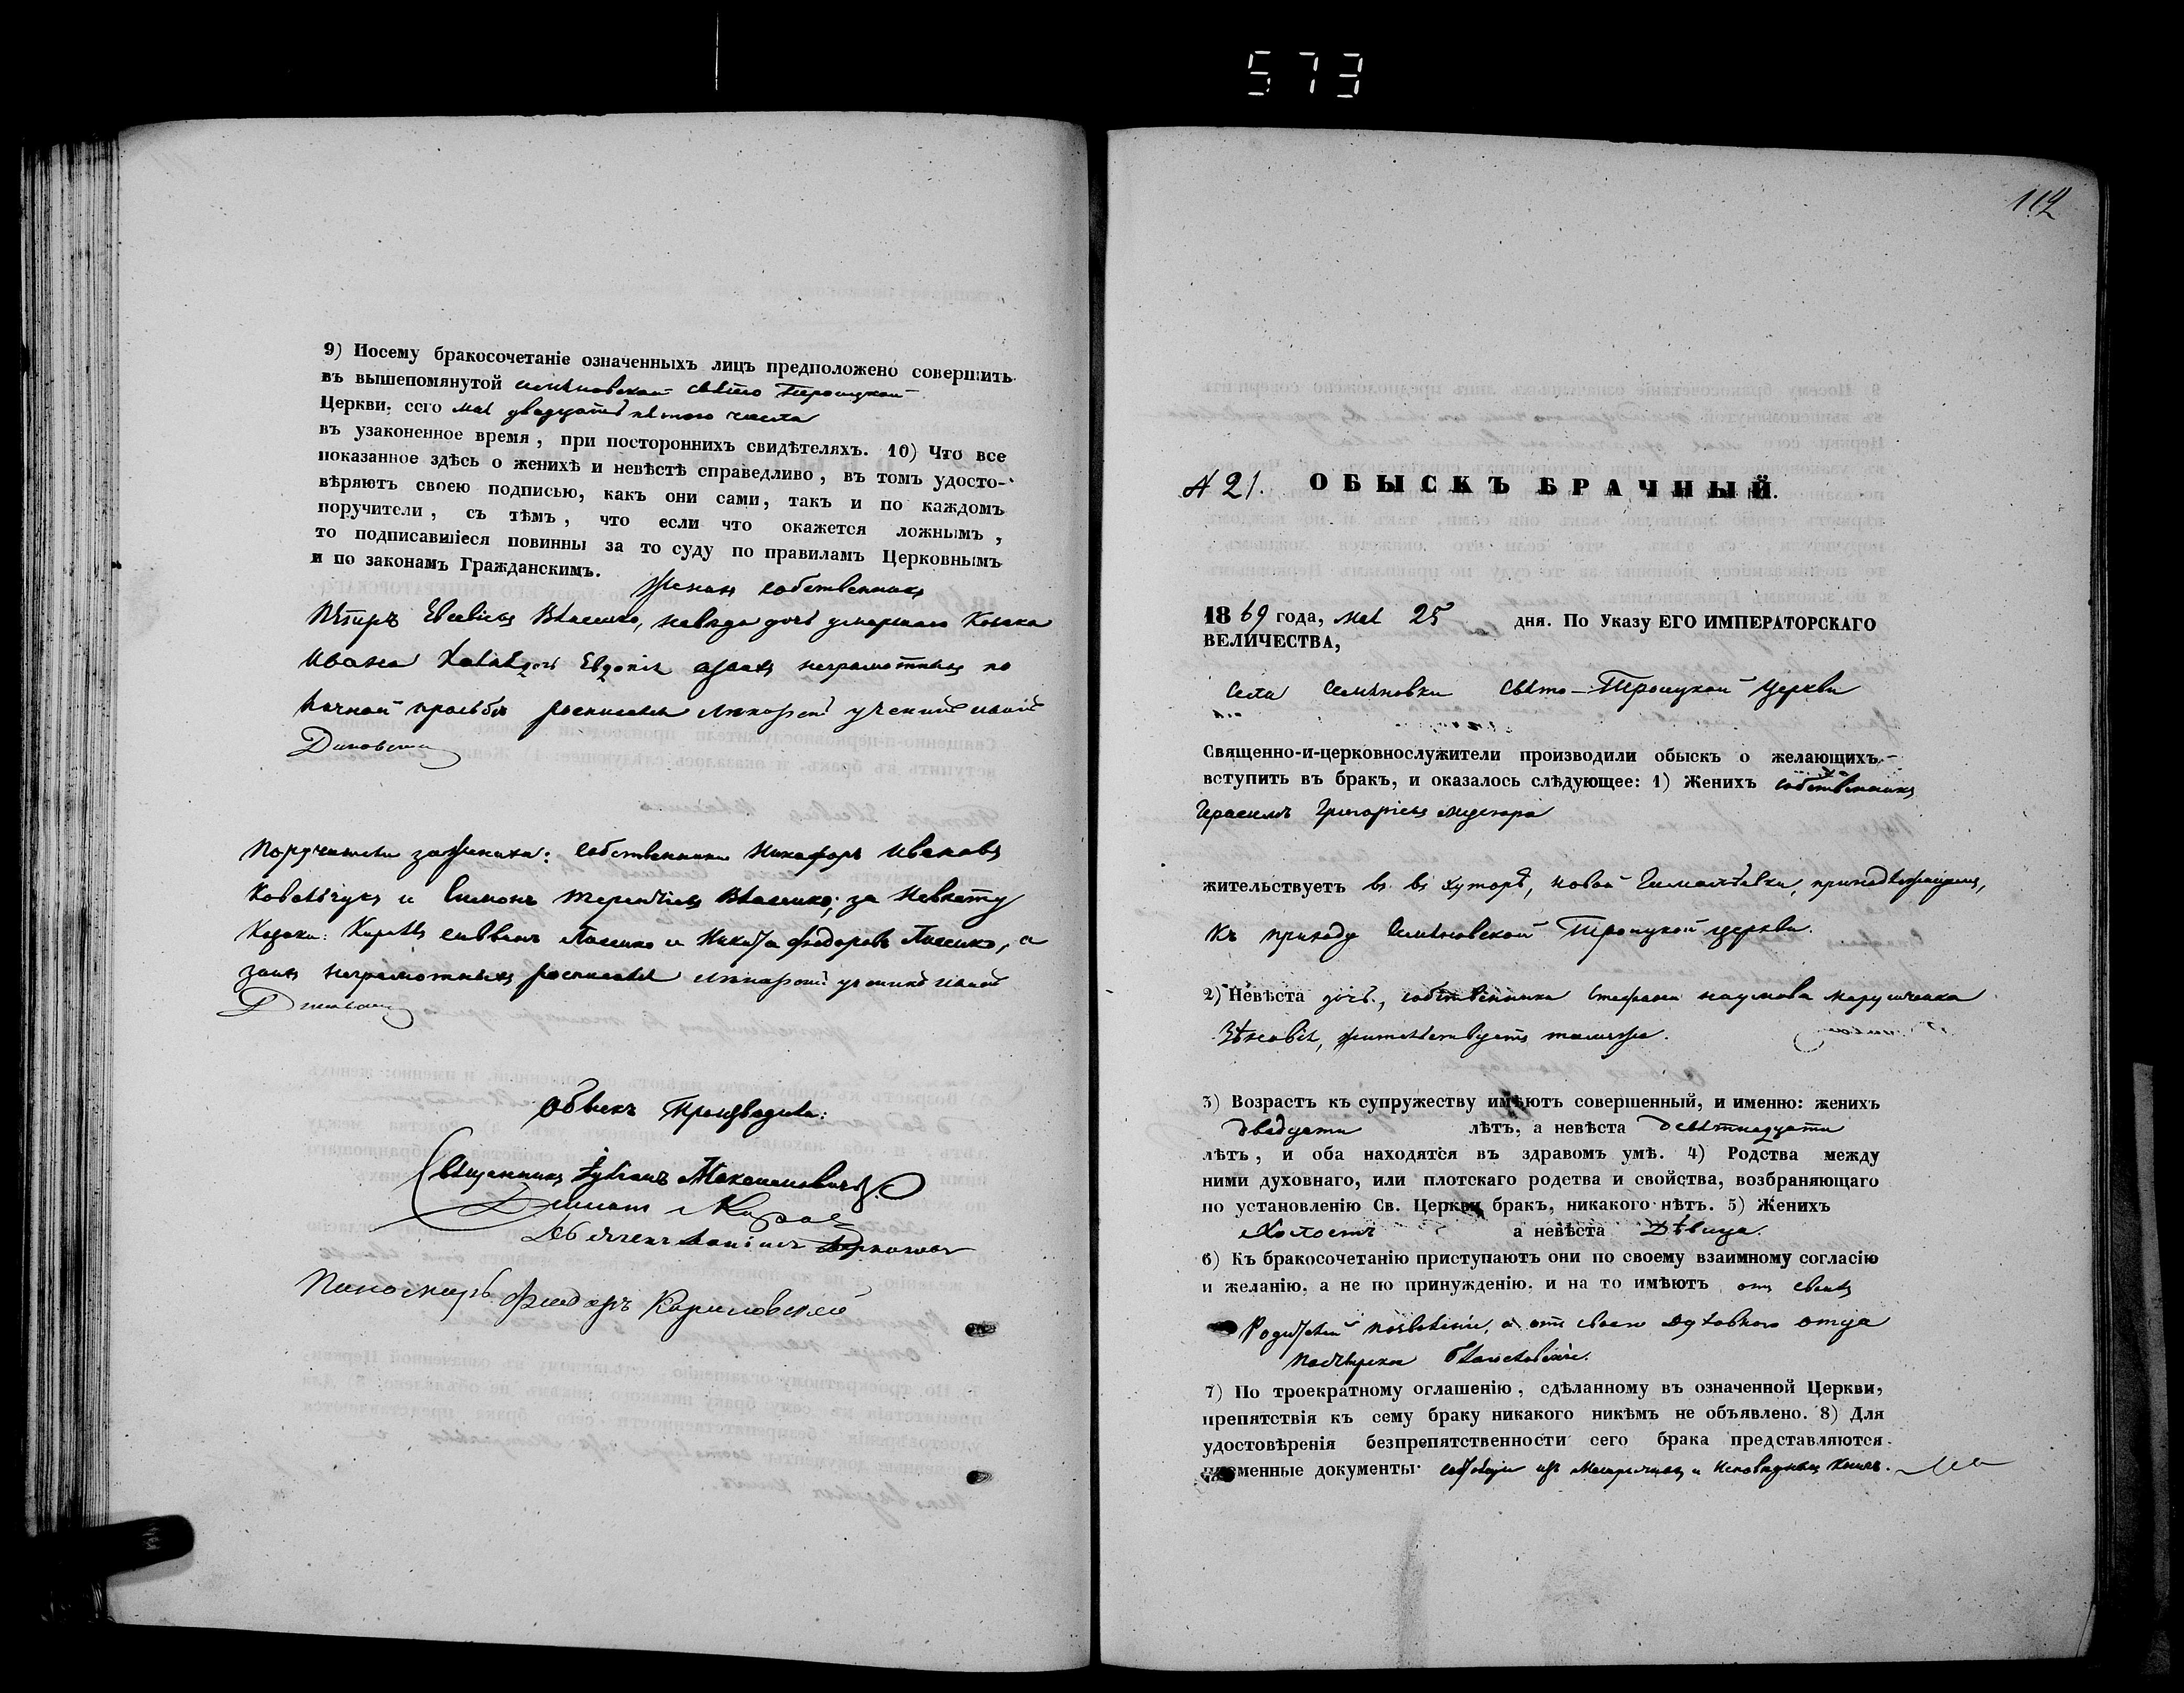 573
9) Посему бракосочетаніе означенныхъ лицъ предположено совершить
въ вышепомянутой Семяновской Свято Троицкой
Церкви, сего мая двадцать пятого числа
въ узаконенное время, при постороннихъ свидѣтеляхъ. 10) Что все
показанное здѣсь о женихѣ и невѣстѣ справедливо, въ томъ удосто-
вѣряютъ своею подписью, какъ они сами, такъ и по каждомъ
поручители, съ тѣмъ, что если что окажется ложнымъ,
то подписавшіеся повинны за то суду по правиламъ Церковнымъ
и по законамъ Гражданскимъ.
Женихъ собственникъ
Петръ Власенко, дочь умершаго Козака
Ивана Евдокія неграмотны по
личной просьбѣ росписался ученикъ
Поручители за жениха: собственники Никифоръ Ивановъ
Ковальчукъ и Симонъ Терентіевъ Власенко; за невѣсту
Козаки: Кирилъ и Никита Федоровъ а
за ихъ неграмотныхъ росписался ученикъ
Обыскъ производили:
Священникъ Іуліанъ Максимовичъ
Пономарь Феодоръ Кариловскій
112
N 21. ОБЫСКЪ БРАЧНЫЙ.
1869 года, мая 25 дня. По Указу ЕГО ИМПЕРАТОРСКАГО
ВЕЛИЧЕСТВА,
Села Семяновки Свято-Троицкой Церкви
Священно-и-церковнослужители производили обыскъ о желающихъ
вступить въ бракъ, и оказалось слѣдующее: 1) Женихъ собственникъ
Герасимъ Григоріевъ
жительствуетъ въ въ хуторѣ, новой принадлежащемъ,
къ приходу Семяновской Троицкой церкви.
2) Невѣста дочь, собственника Стефана Наумова
Зѣновія, жительствуетъ тамъже.
3) Возрастъ къ супружеству имѣютъ совершенный, и именно: женихъ
двадцати лѣтъ, а невѣста девятнадцати
лѣтъ, и оба находятся въ здравомъ умѣ. 4) Родства между
ними духовнаго, или плотскаго родства и свойства, возбраняющаго
по установленію Св. Церкви бракъ, никакого нѣтъ. 5) Женихъ
Холостъ а невѣста Дѣвица.
6) Къ бракосочетанію приступаютъ они по своему взаимному согласію
и желанію, а не по принужденію, и на то имѣютъ отъ своихъ
Родителей позволеніе, а отъ своего духовнаго отца
пастырское благословеніе.
7) По троекратному оглашенію, сдѣланному въ означенной Церкви,
препятствія къ сему браку никакого никѣмъ не объявлено. 8) Для
удостовѣренія безпрепятственности сего брака представляются
письменные документы: изъ Метричныхъ и Исповѣдныхъ книгъ.